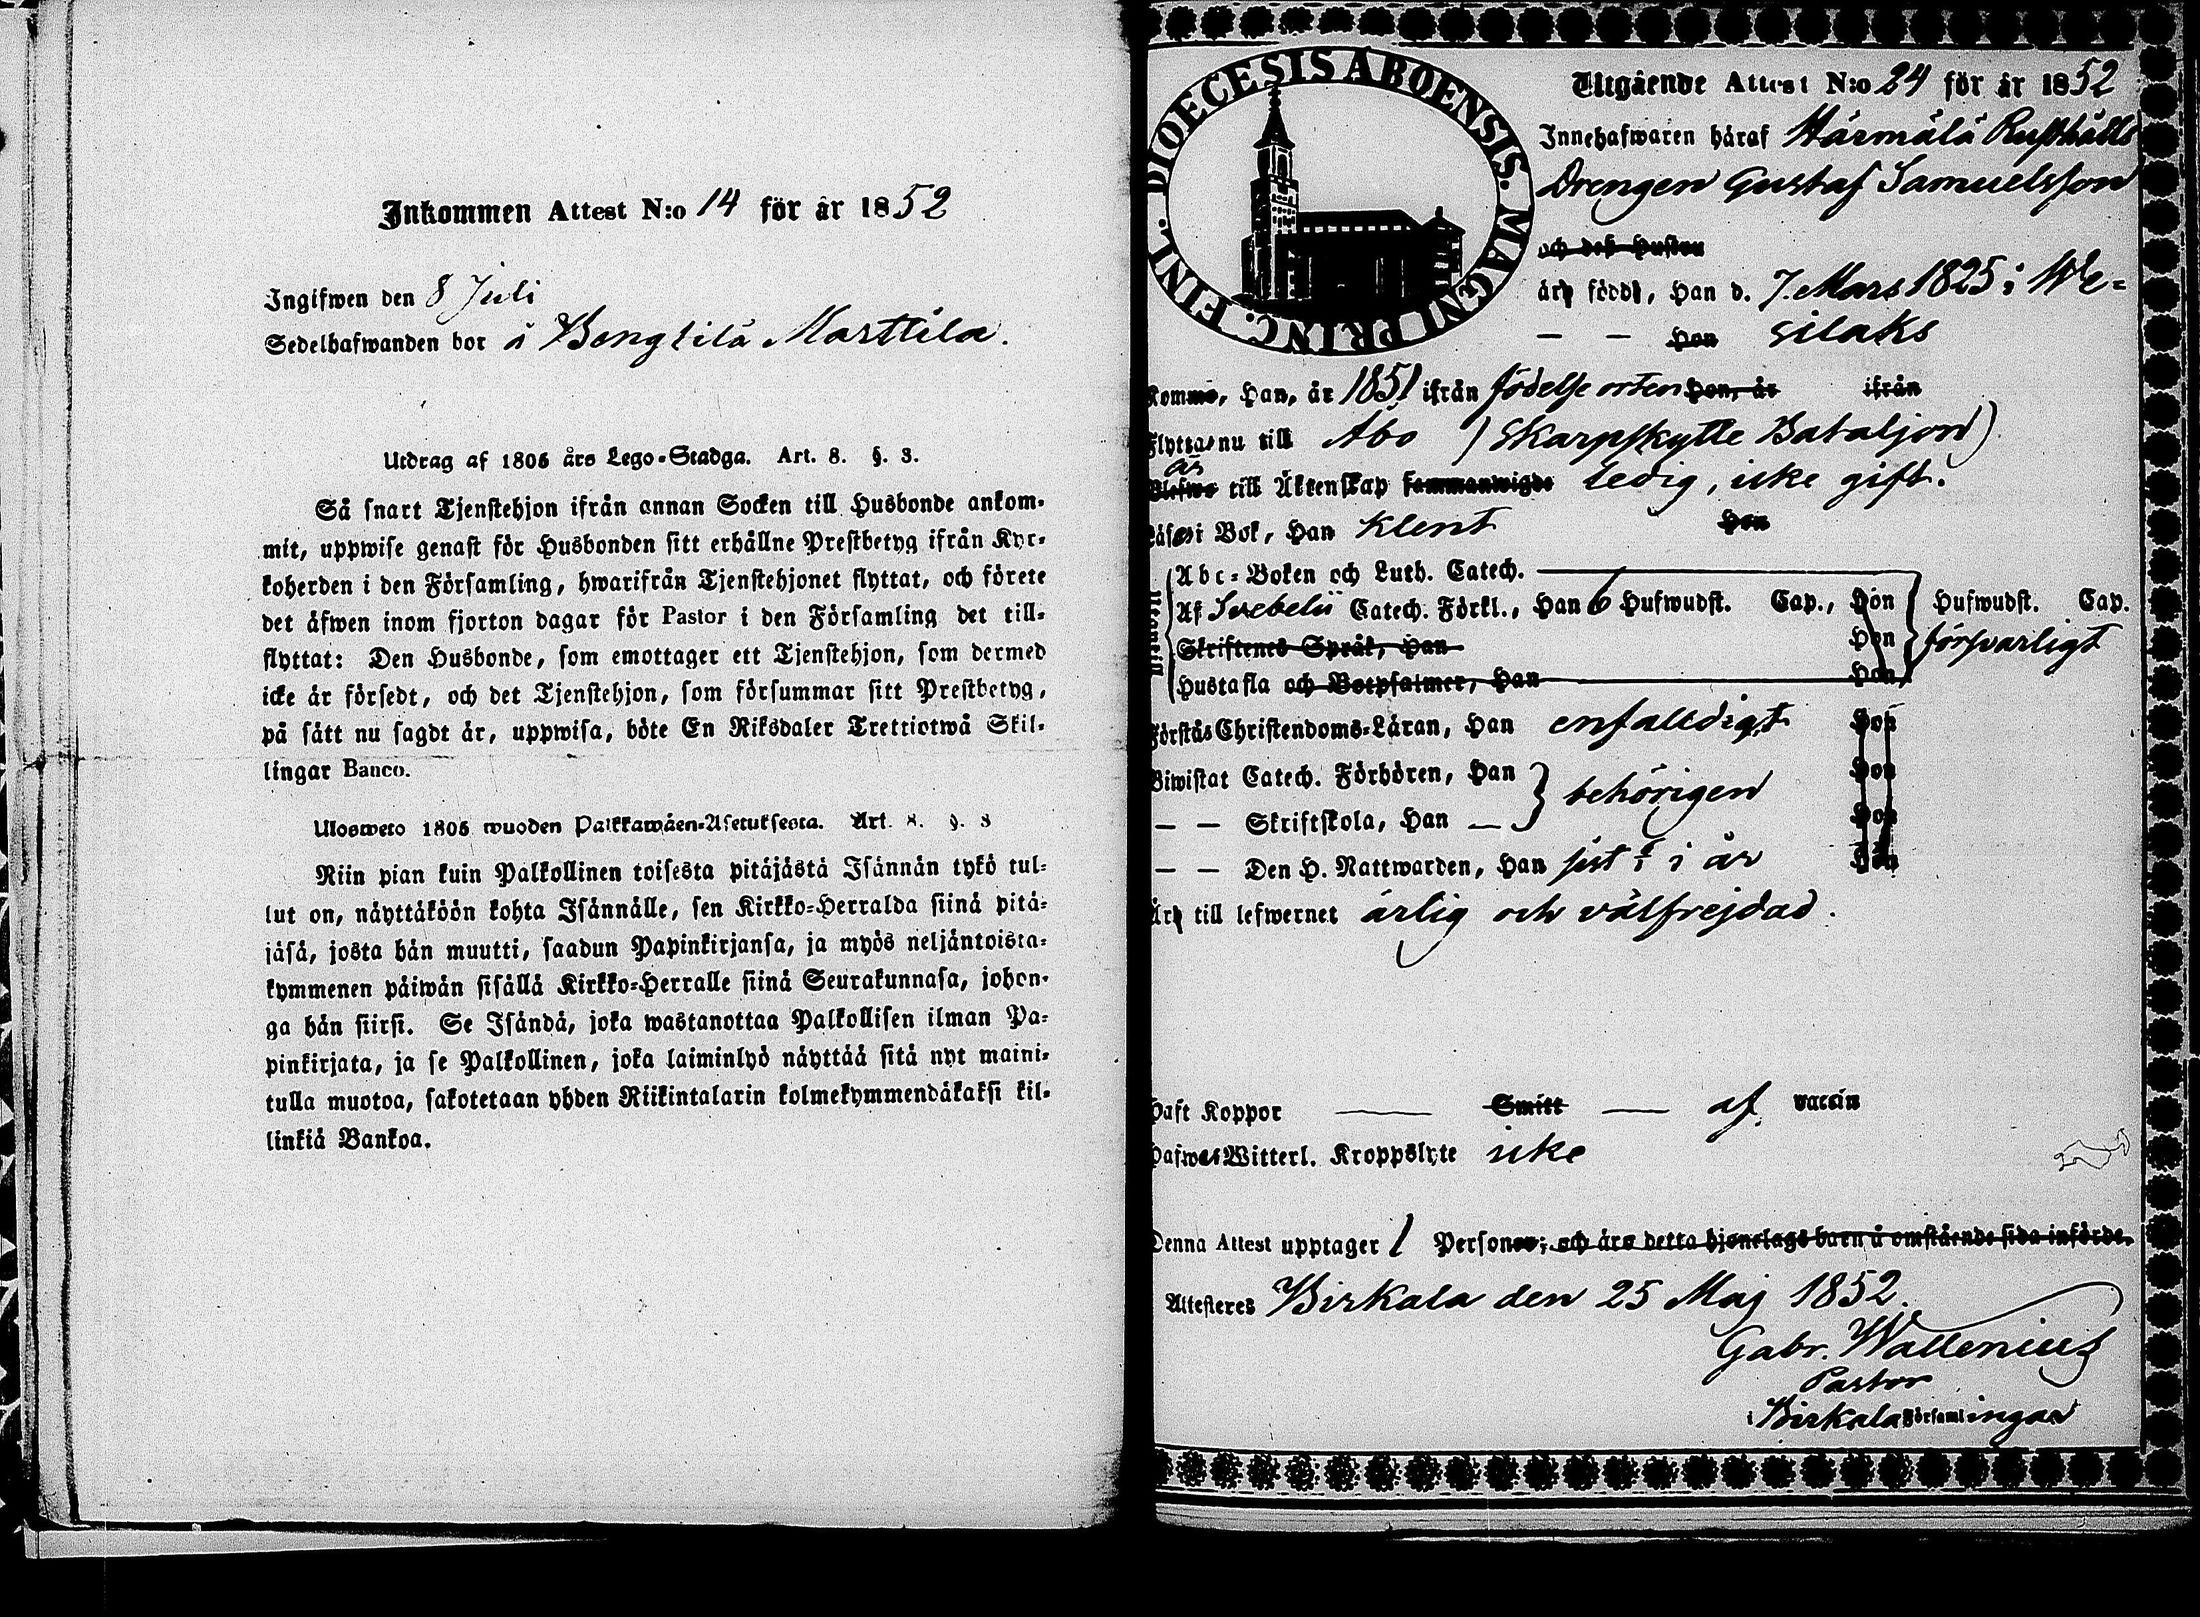 Inkommen Attest N:o 14 för år 1852
Ingifwen den 8 Juli
Sedelhafwanden bor å Bengtilä Marttila.
Utdrag af 1805 års Lego-Stadga. Art. 8. §. 3.
Så snart Tjenstehjon ifrån annan Socken till Husbonde ankom-
mit, uppwise genast för Husbonden sitt erhållne Prestbetyg ifrån Kyr-
koherden i den Församling, hwarifrån Tjenstehjonet flyttat, och förete
det äfwen inom fjorton dagar för Pastor i den Församling det till-
flyttat: Den Husbonde, som emottager ett Tjenstehjon, som dermed
icke är försedt, och det Tjenstehjon, som försummar sitt Prestbetyg,
på sätt nu sagdt är, uppwisa, böte En Riksdaler Trettiotwå Skil-
lingar Banco.
Ulosweto 1805 wuoden Palkkawäen-Asetuksesta. Art. 8. §. 3
Niin pian kuin Palkollinen toisesta pitäjästä Isännän tykö tul-
lut on, näyttäköön kohta Isännälle, sen Kirkko-Herralda siinä pitä-
jäsä, josta hän muutti, saadun Papinkirjansa, ja myös neljäntoista-
kymmenen päiwän sisällä Kirkko-Herralle siinä Seurakunnasa, johon-
ga hän siirsi. Se Isändä, joka wastanottaa Palkollisen ilman Pa-
pinkirjata, ja se Palkollinen, joka laiminlyö näyttää sitä nyt maini-
tulla muotoa, sakotetaan yhden Riikintalarin kolmekymmendäkaksi kil-
linkiä Bankoa.
DIOECESIS ABOENSIS. MAGNI PRINC. FINL.
Utgående Attest N:o 24 för år 1852
Innehafwaren häraf Härmälä Rusthålls
Drengen Gustaf Samuelsson
och deß Hustru
äro födde, Han d. 7. Mars 1825 i We-
— — Hon silaks
Komme, Han, år 1851 ifrån födelse orten Hon, år ifrån
Flyttas nu till Åbo (Skarpskytte Bataljon)
är
Blefwo till Äktenskap sammanwigde ledig, icke gift.
Läser i Bok, Han klent Hon
Abc-Boken och Luth. Catech.
Af Svebelii Catech. Förkl., Han 6 Hufwudst. Cap., Hon Hufwudst. Cap.
Skriftenes Språk, Han Hon försvarligt
Hustafla och Botpsalmer, Han Hon
Förstås Christendoms-Läran, Han enfalldigt Hon
Biwistat Catech. Förhören, Han behörigen Hon
— — Skriftskola, Han — Hon
— — Den H. Nattwarden, Han sist i år Hon
Äro till lefwernet ärlig och välfrejdad.
Haft Koppor — Smitt — af vaccin
Hafwer Witterl. Kroppslyte icke
Denna Attest upptager 1 Personer; och äro detta hjonelags barn å omstående sida införde.
Attesteres Birkala den 25 Maj 1852.
Gabr. Wallenius
Pastor
i Birkala Församlingar